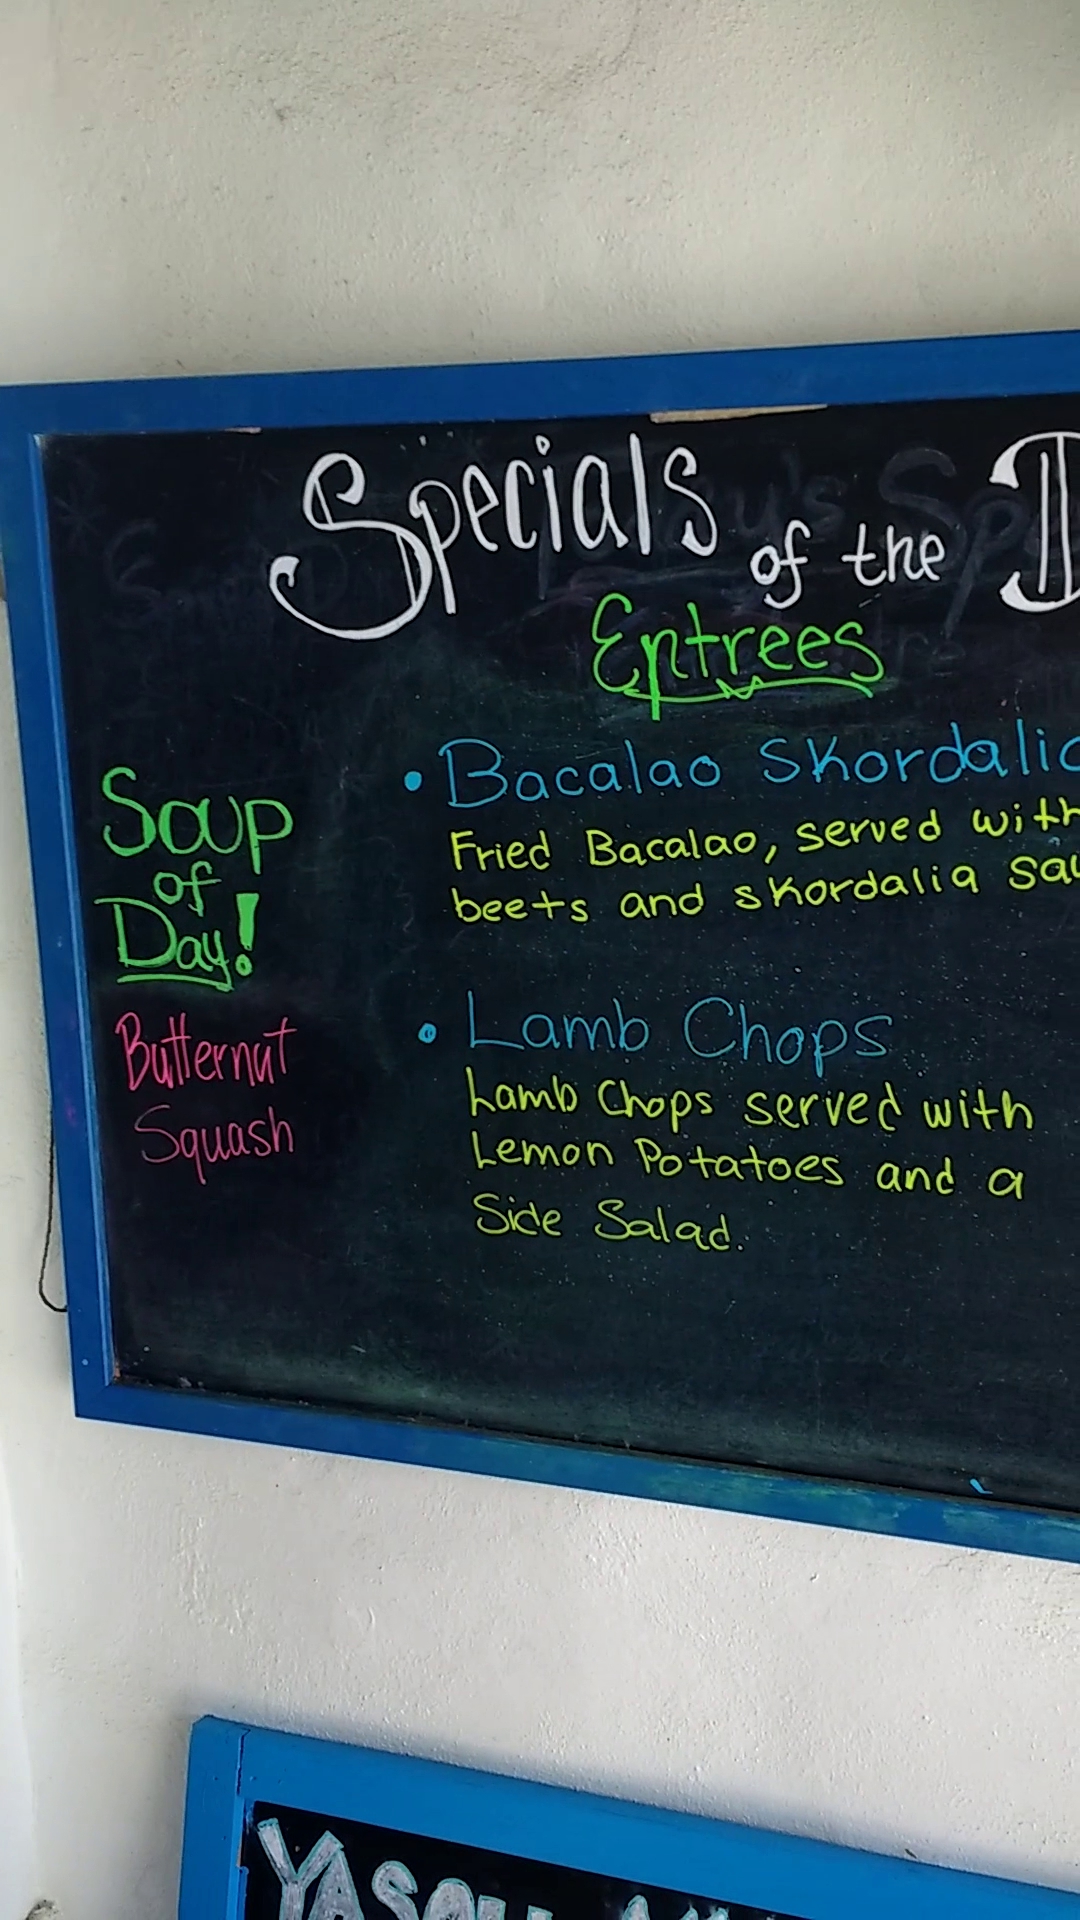 Specials of the D
Entrees
Soup
of
Day!
Butternut
Squash
• Bacalao Skordalia
Fried Bacalao, served with
beets and skordalia
• Lamb Chops
Lamb Chops served with
Lemon Potatoes and a
Side Salad.
YASOU